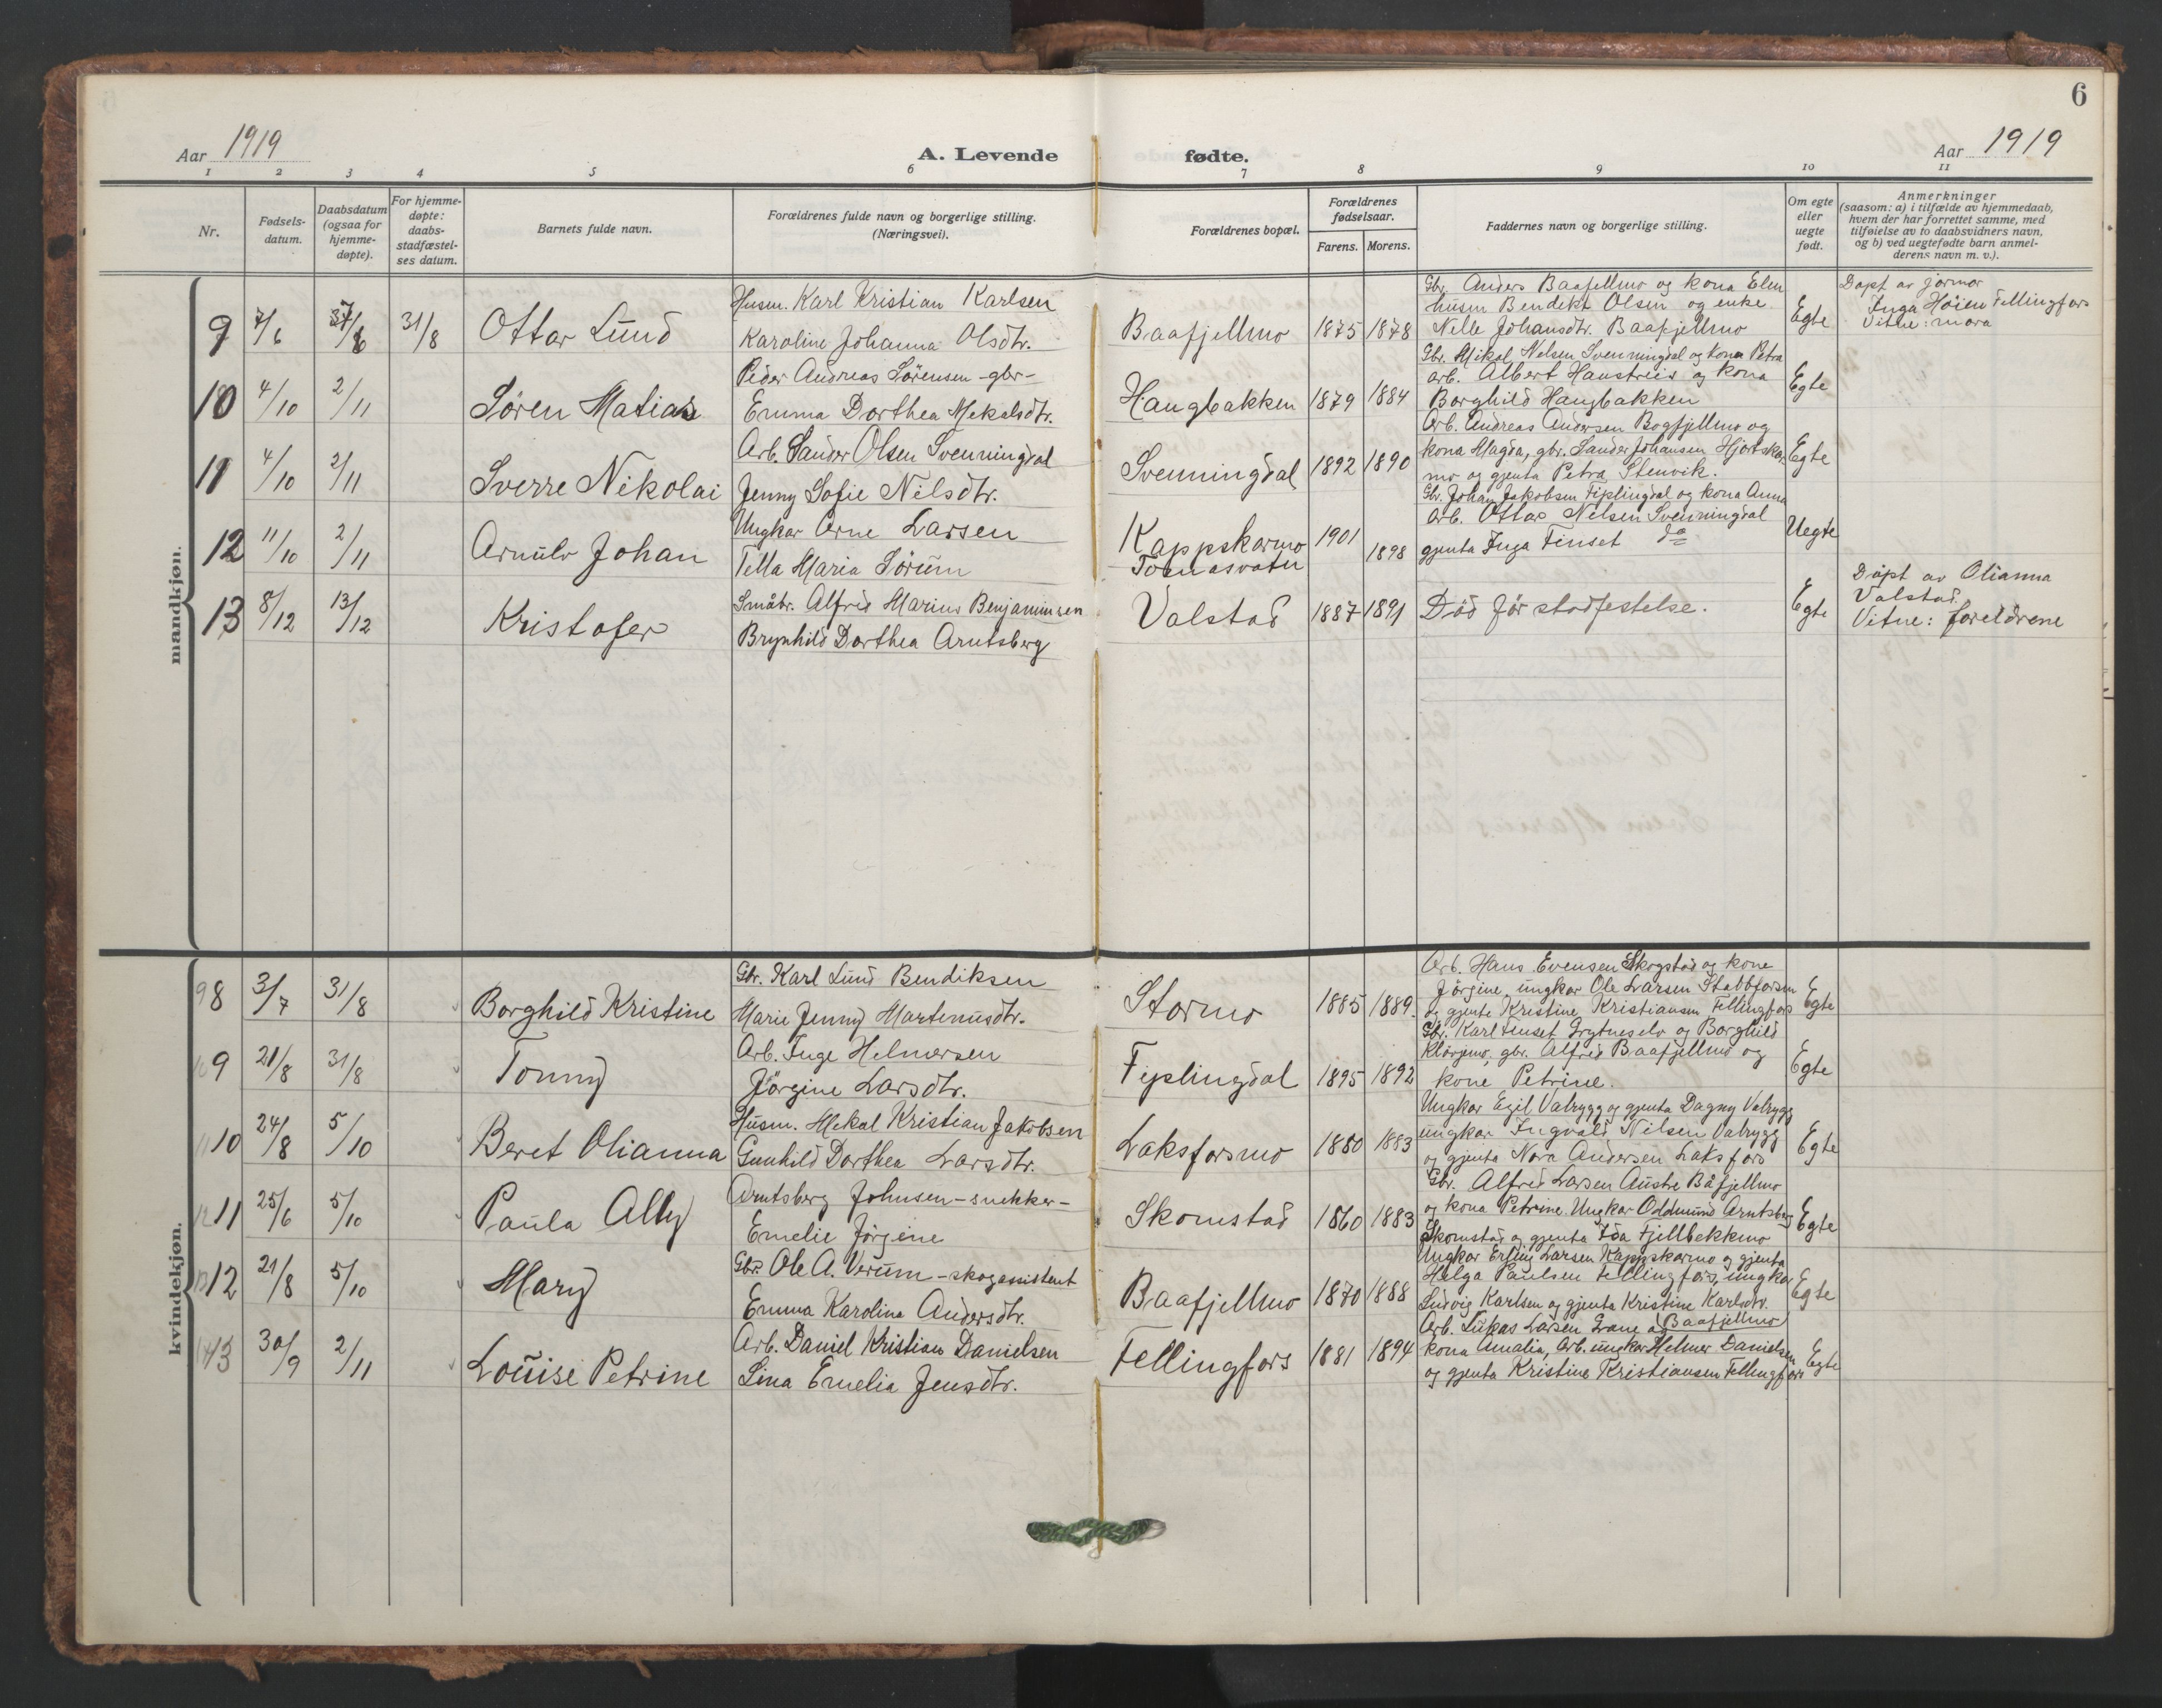 6
Aar 1919
A. Levende fødte.
Aar 1919
1 2 3 4 5 6 7 8 9 10 11
Nr.
Fødsels-
datum.
Daabsdatum
(ogsaa for
hjemme-
døpte).
For hjemme-
døpte:
daabs-
stadfæstel-
ses datum.
Barnets fulde navn.
Forældrenes fulde navn og borgerlige stilling.
(Næringsvei).
Forældrenes bopæl.
Forældrenes
fødselsaar.
Farens. Morens.
Faddernes navn og borgerlige stilling.
Om egte
eller
uegte
født.
Anmerkninger
(saasom: a) i tilfælde av hjemmedaab,
hvem der har forrettet samme, med
tilføielse av to daabsvidners navn,
og b) ved uegtefødte barn anmel-
derens navn m. v.).
mandkjøn.
9 7/6 31/8 Ottar Lund
Husm. Karl Kristian Karlsen
Karoline Johanna Olsdtr.
Baafjellmo 1875 1878
Gbr. Anders Baafjellmo og kona Elen
husm Bendikt Olsen og enke
Nelle Johansdtr. Baafjellmo
Egte
Døpt av jormor
Inga Höien Fellingfors
Vitne: mora
10 4/10 2/11 Søren Matias
Peder Andreas Sörensen -gbr-
Emma Dorthea Mekalsdtr.
Haugbakken 1879 1884
Gbr. Mikal Nelsen Svenningdal og kona Petra
arb. Albert Haustreis og kona
Borghild Haugbakken
Egte
11 4/10 2/11 Sverre Nikolai
Arb. Sander Olsen Svenningdal
Jenny Sofie Nilsdtr.
Svenningdal 1892 1890
Arb. Andreas Andersen Bogfjellmo og
kona Magda, gbr. Sander Johansen Hjortskar
mo og gjenta Petra Stenvik.
Egte
12 11/10 2/11 Arnulv Johan
Ungkar Arne Larsen
Tella Maria Sörum
Kappskarmo
Tomasvatn
1901 1898
Gbr. Johan Jakobsen Fiplingdal og kona Anna
arb. Ottar Nelsen Svenningdal
gjenta Inga Finset do
Uegte
13 8/12 13/12 Kristofer
Småbr. Alfred Marius Benjaminsen
Brynhild Dorthea Arntsberg
Valstad 1887 1891 Död för stadfestelse.
Egte
Döpt av Olianna
Valstad.
Vitne: foreldrene
kvindekjøn.
8 3/7 31/8 Borghild Kristine
Gbr. Karl Lund Bendiksen
Marie Jenny Martenusdtr.
Stormo 1885 1889
Arb. Hans Evensen Skogstad og kone
Jörgine, ungkar Ole Larsen Stabbforsen
og gjenta Kristine Kristiansen Fellingfors
Egte
9 21/8 31/8 Tonny
Arb. Inge Helmersen
Jörgine Larsdtr.
Fiplingdal 1895 1892
Gbr. Karl Finset Grytneselv og Borghild
gbr. Alfred Baafjellmo og
kone Petrine.
Egte
10 24/8 5/10 Beret Olianna
Husm. Mekal Kristian Jakobsen
Gunhild Dorthea Larsdtr.
Laksforsmo 1880 1883
Ungkar Egil Valrygg og gjenta Dagny Valrygg
ungkar Ingvald Nilsen Valrygg
og gjenta Nora Andersen Laksfors
Egte
11 25/6 5/10 Paula Ally
Arntsberg Johnsen - snekker -
Emelie Jörgine
Skomstad 1860 1883
Gbr. Alfred Larsen Austre Båfjellmo
og kona Petrine. Ungkar Oddmund Arntsberg
Skomstad og gjenta Ida Fjellbekkmo
Egte
12 21/8 5/10 Mary
Gbr. Ole A. Verum - skogassistent
Emma Karolina Andersdtr.
Baafjellmo 1870 1888
Ungkar Erling Larsen Kappskarmo og gjenta
Helga Paulsen Fellingfors, ungkar
Ludvig Karlsen og gjenta Kristine Karlsdtr.
Baafjellmo
Egte
13 30/9 2/11 Louise Petrine
Arb. Daniel Kristian Danielsen
Lina Emelia Jensdtr.
Fellingfors 1881 1894
Arb. Lukas Larsen Grane og
kona Amalia, Arb. ungkar Helmer Danielsen
og gjenta Kristine Kristiansen Fellingfors
Egte